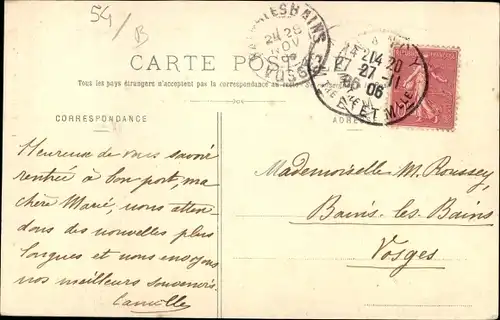 54
B
BAINS-LES-BAINS
28
NOV
VOSGES
14 20
27-11
06
CARTE POSTALE
Tous les pays étrangers n'acceptent pas la correspondance au recto
CORRESPONDANCE
ADRESSE
Heureuse de vous savoir
rentrée à bon port, ma
chère Marie, nous atten-
dons des nouvelles plus
longues et nous envoyons
nos meilleurs souvenirs.
Camille
Mademoiselle M. Roussey,
Bains-les-Bains
Vosges